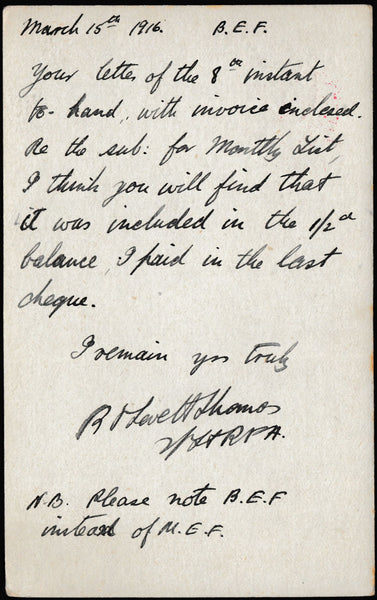 March 15th 1916. B.E.F.
Your letter of the 8th instant
to-hand, with invoice enclosed.
Re the sub: for Monthly List,
I think you will find that
it was included in the 1/2d
balance, I paid in the last
cheque.
I remain yrs truly
R Lovett Thomas
N.B. Please note B.E.F
instead of M.E.F.